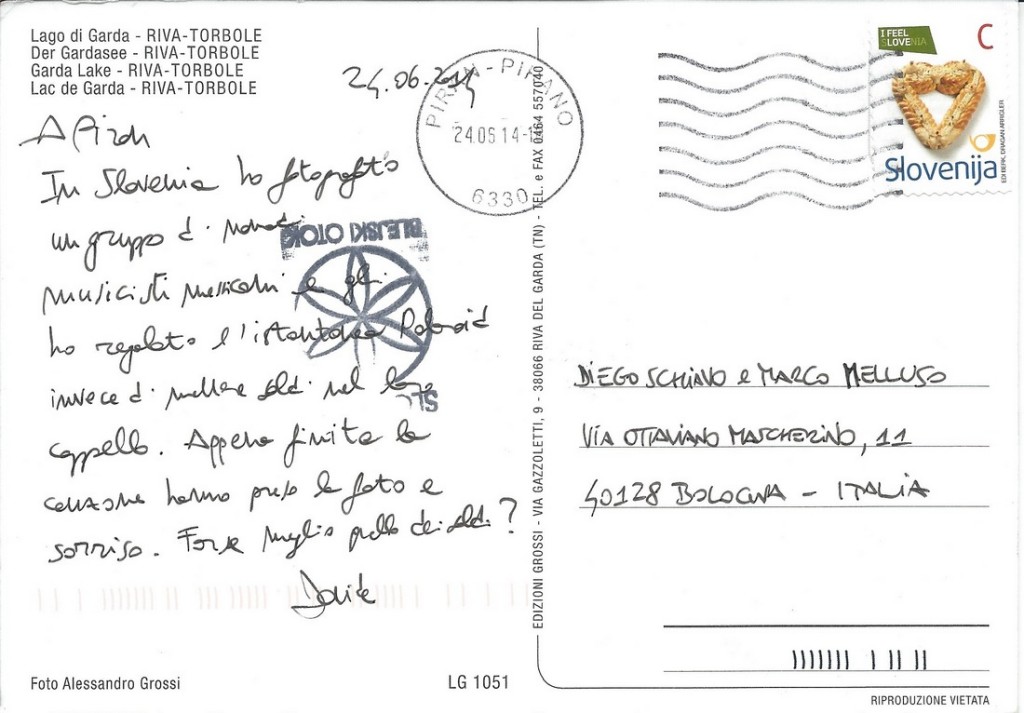 Lago di Garda - RIVA-TORBOLE
Der Gardasee - RIVA-TORBOLE
Garda Lake - RIVA-TORBOLE
Lac de Garda - RIVA-TORBOLE
24.06.2014
PIRAN-PIRANO
24.06.14-1
6330
I FEEL
SLOVENIA
C
Slovenija
EDI BERK, DRAGAN ARRIGLER
A Piran
In Slovenia ho fotografato
un gruppo di nomadi
musicisti messicani e gli
ho regalato l'istantanea Polaroid
invece di mettere soldi nel loro
cappello. Appena finita la
canzone hanno preso la foto e
sorriso. Forse meglio quella dei soldi?
Davide
BLEJSKI OTOK
EDIZIONI GROSSI - VIA GAZZOLETTI, 9 - 38066 RIVA DEL GARDA (TN) - TEL. e FAX 0464 557040
DIEGO SCHIAVO e MARCO MELLUSO
VIA OTTAVIANO MASCHERINO, 11
40128 BOLOGNA - ITALIA
Foto Alessandro Grossi
LG 1051
RIPRODUZIONE VIETATA